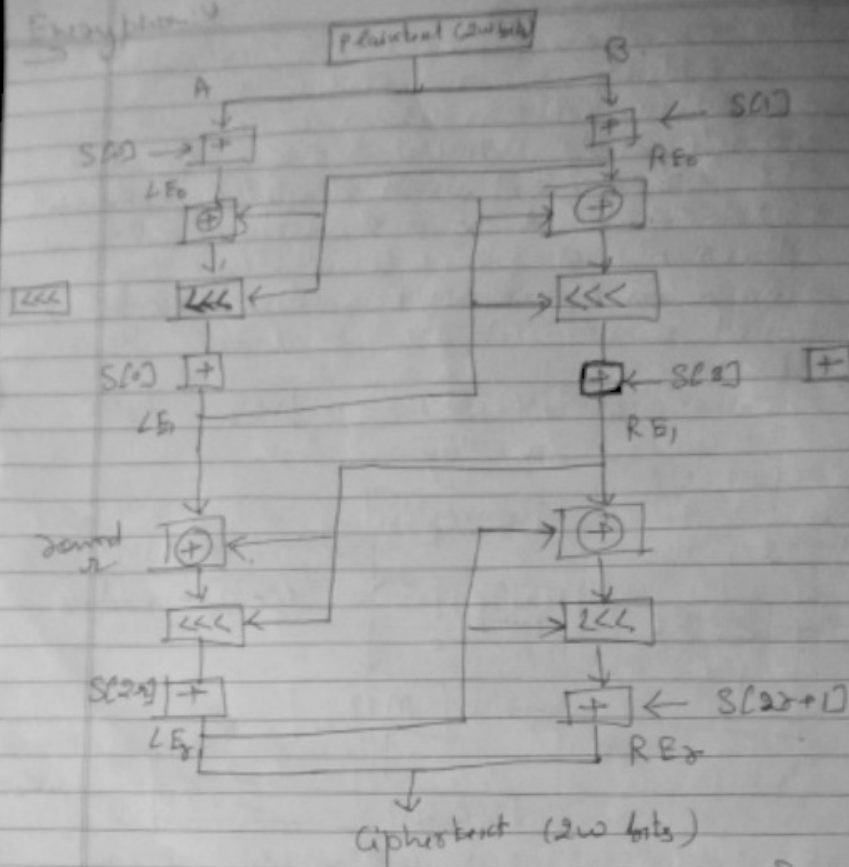 Encryption:
Plaintext (2w bits)
A B
S[0] + + S[1]
LE0 RE0
+ +
<<< <<< <<<
S[0] + + S[3] +
LE1 RE1
round r + +
<<< <<<
S[2r] + + S[2r+1]
LEr REr
Ciphertext (2w bits)